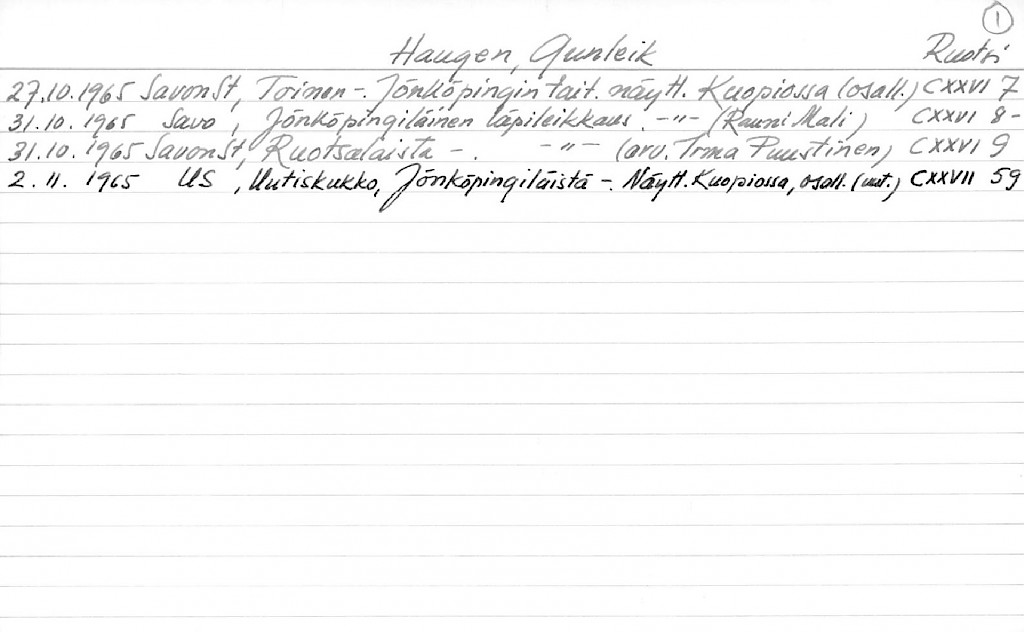 1
Haugen, Gunleik Ruotsi
27.10.1965 SavonSt, Toinen -. Jönköpingin tait. näytt. Kuopiossa (osall.) CXXVI 7
31.10.1965 Savo, Jönköpingiläinen läpileikkaus. -"- (Rauni Mali) CXXVI 8-
31.10.1965 SavonSt, Ruotsalaista -. -"- (arv. Irma Puustinen) CXXVI 9
2.11.1965 US, Uutiskukko, Jönköpingiläistä -. Näytt. Kuopiossa, osall. (uut.) CXXVII 59